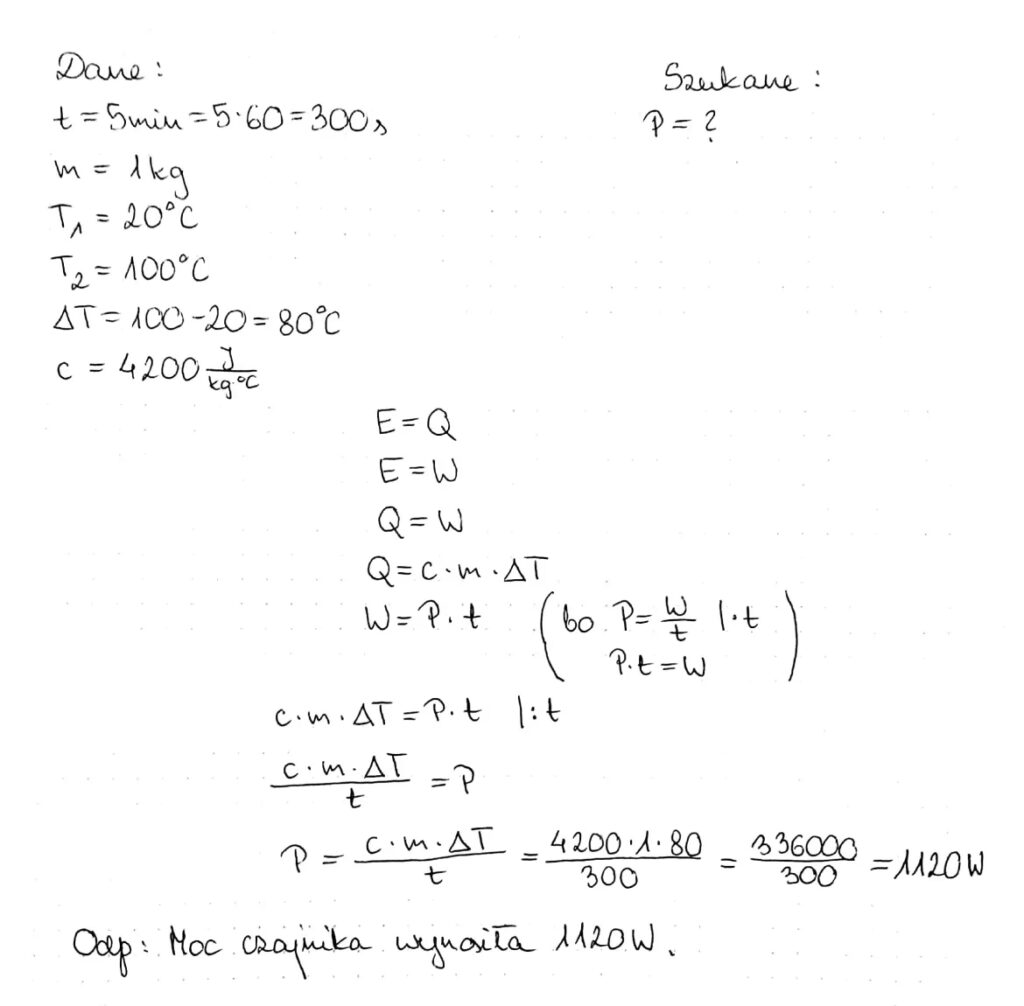 Dane:
Szukane:
t = 5min = 5·60 = 300s
P = ?
m = 1kg
T₁ = 20°C
T₂ = 100°C
ΔT = 100-20 = 80°C
c = 4200 J/kg·°C
E = Q
E = W
Q = W
Q = c·m·ΔT
W = P·t (bo P = W/t |·t
P·t = W)
c·m·ΔT = P·t |:t
c·m·ΔT/t = P
P = c·m·ΔT/t = 4200·1·80/300 = 336000/300 = 1120W
Odp: Moc czajnika wynosiła 1120W.